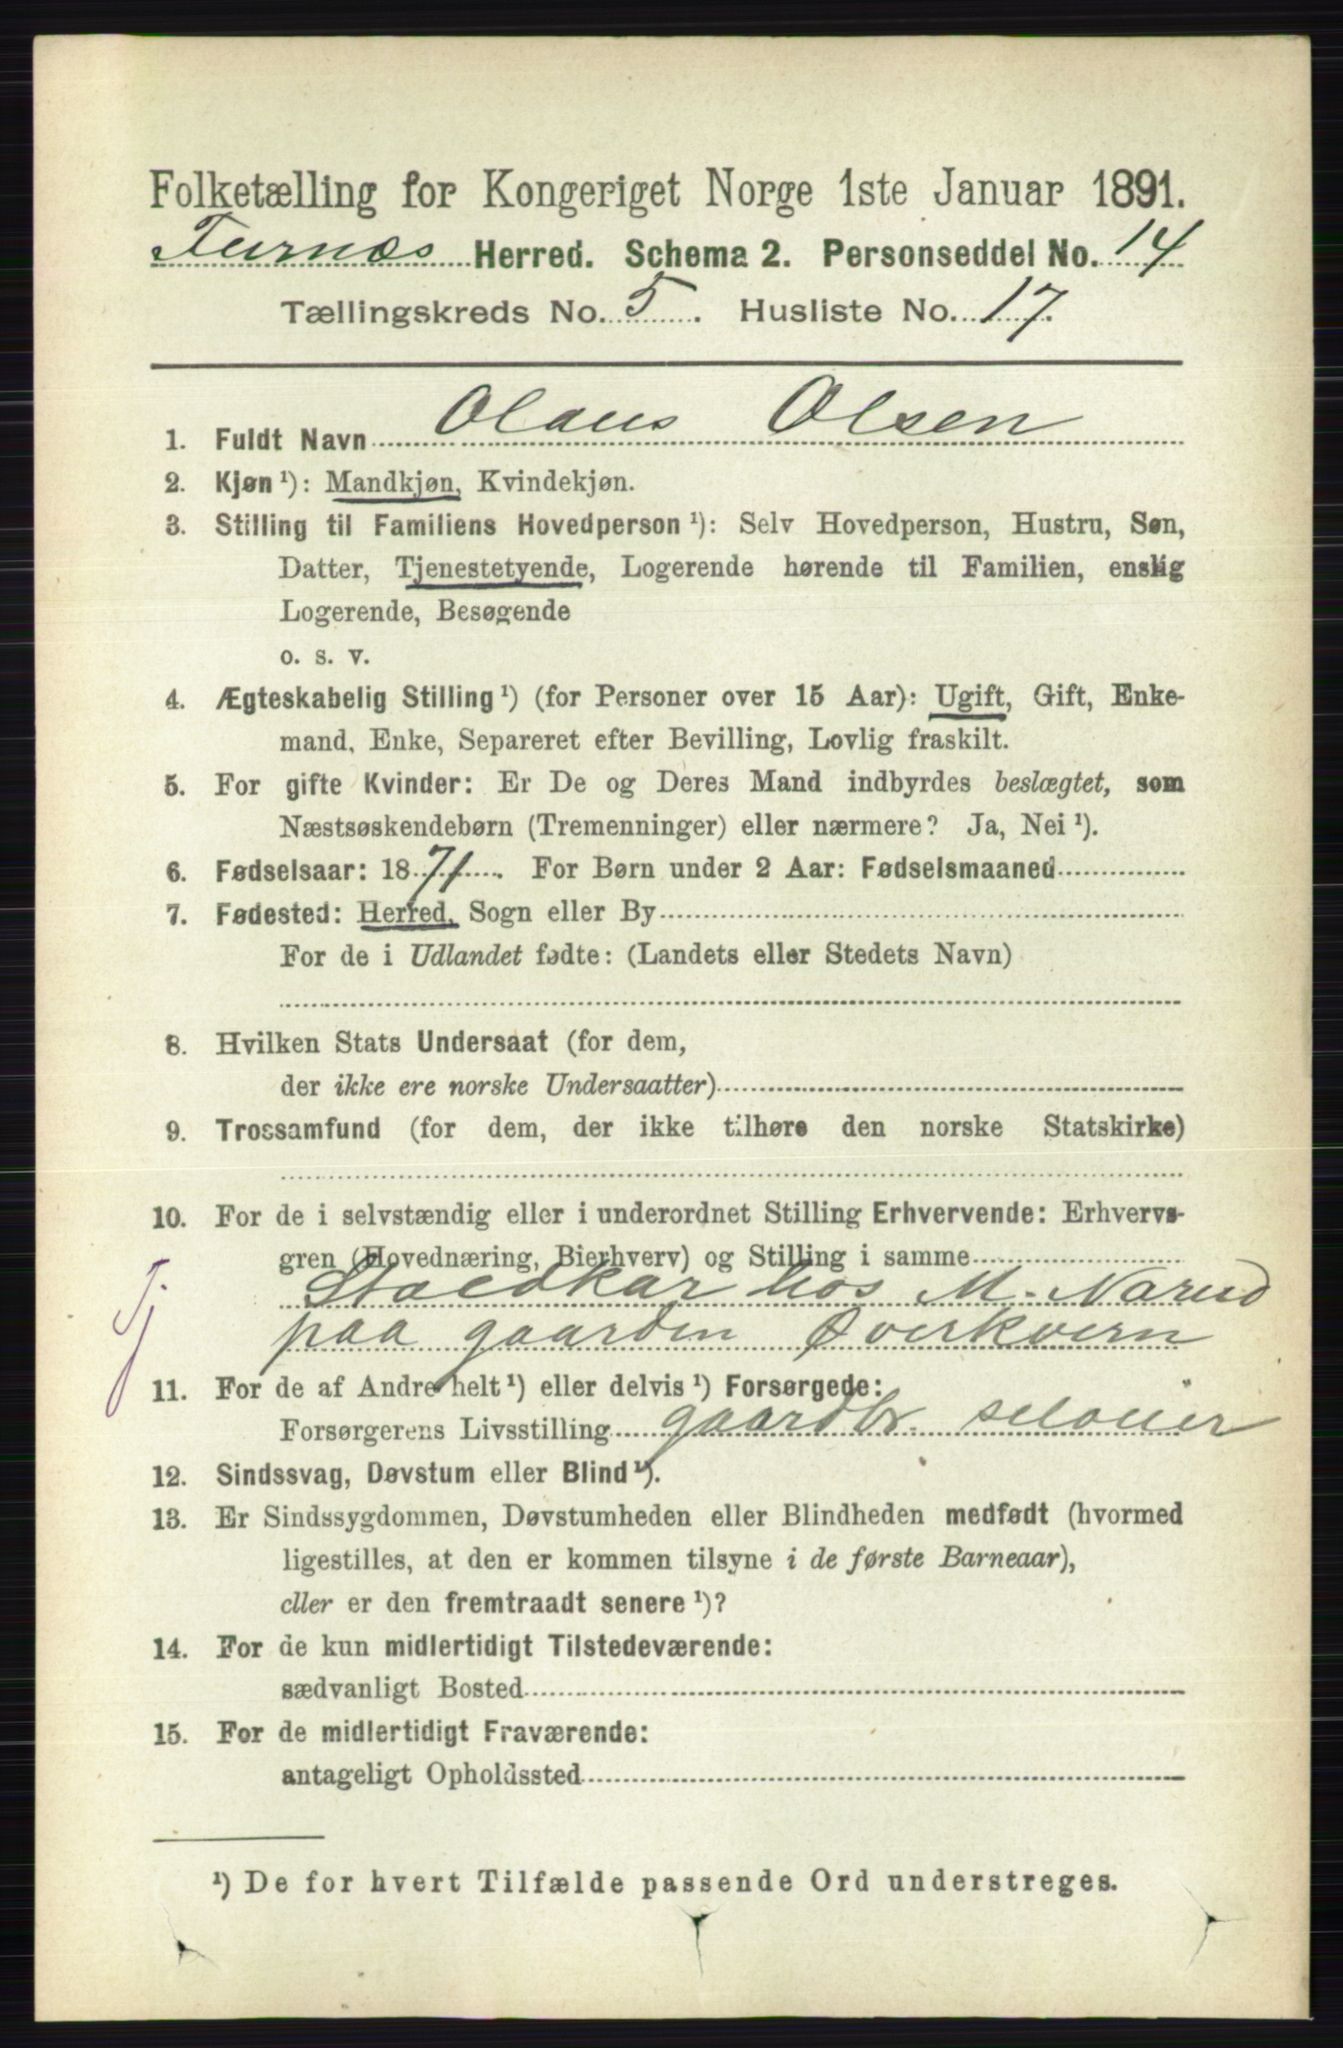 Folketælling for Kongeriget Norge 1ste Januar 1891.
Furnæs Herred. Schema 2. Personseddel No. 14
Tællingskreds No. 5. Husliste No. 17.
1. Fuldt Navn Olaus Olsen
2. Kjøn ¹): Mandkjøn, Kvindekjøn.
3. Stilling til Familiens Hovedperson ¹): Selv Hovedperson, Hustru, Søn,
Datter, Tjenestetyende, Logerende hørende til Familien, enslig
Logerende, Besøgende
o. s. v.
4. Ægteskabelig Stilling ¹) (for Personer over 15 Aar): Ugift, Gift, Enke-
mand, Enke, Separeret efter Bevilling, Lovlig fraskilt.
5. For gifte Kvinder: Er De og Deres Mand indbyrdes beslægtet, som
Næstsøskendebørn (Tremenninger) eller nærmere? Ja, Nei ¹).
6. Fødselsaar: 1871. For Børn under 2 Aar: Fødselsmaaned
7. Fødested: Herred, Sogn eller By
For de i Udlandet fødte: (Landets eller Stedets Navn)
8. Hvilken Stats Undersaat (for dem,
der ikke ere norske Undersaatter)
9. Trossamfund (for dem, der ikke tilhøre den norske Statskirke)
10. For de i selvstændig eller i underordnet Stilling Erhvervende: Erhvervs-
gren (Hovednæring, Bierhverv) og Stilling i samme
Tj
Staldkar hos M. Narud
paa gaarden Øverkvern
11. For de af Andre helt ¹) eller delvis ¹) Forsørgede:
Forsørgerens Livsstilling gaardbr. seloiier
12. Sindssvag, Døvstum eller Blind ¹).
13. Er Sindssygdommen, Døvstumheden eller Blindheden medfødt (hvormed
ligestilles, at den er kommen tilsyne i de første Barneaar),
eller er den fremtraadt senere ¹)?
14. For de kun midlertidigt Tilstedeværende:
sædvanligt Bosted
15. For de midlertidigt Fraværende:
antageligt Opholdssted
¹) De for hvert Tilfælde passende Ord understreges.